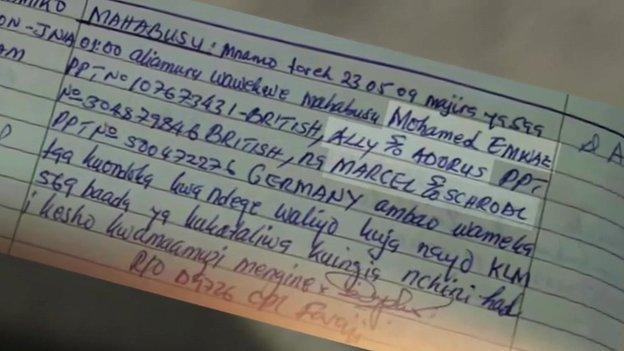 MAHABUSU: Mnamo tareh 23 05 09 majira ya saa
ON-JNIA 01:00 aliamuru wawekwe mahabusu Mohamed EMWAZ
AM PPT No 107673431-BRITISH, ALLY S/O ADORUS PPT
No 304879846 BRITISH, na MARCEL S/O SCHRODL
PPT No 500472276 GERMANY ambao wameka
taa kuondoka kwa ndege waliyo kuja nayo KLM
saa baada ya kukataliwa kuingia nchini had
i kesho kwamaamuzi mengine
R/O D9726 cpl Faraji